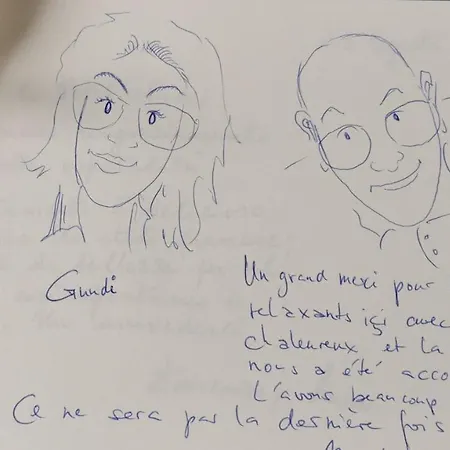 Gundi
Un grand merci pour
relaxants içi avec
chaleureux et la
nous a été acco
L'avons beaucoup
Ce ne sera pas la dernière fois